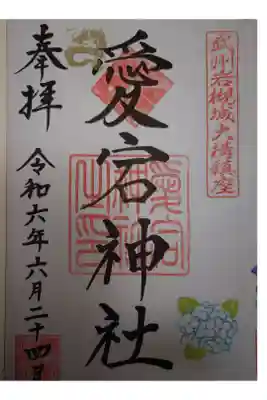 武州岩槻城大溝鎮座
愛宕神社
奉拝
令和六年六月二十四日